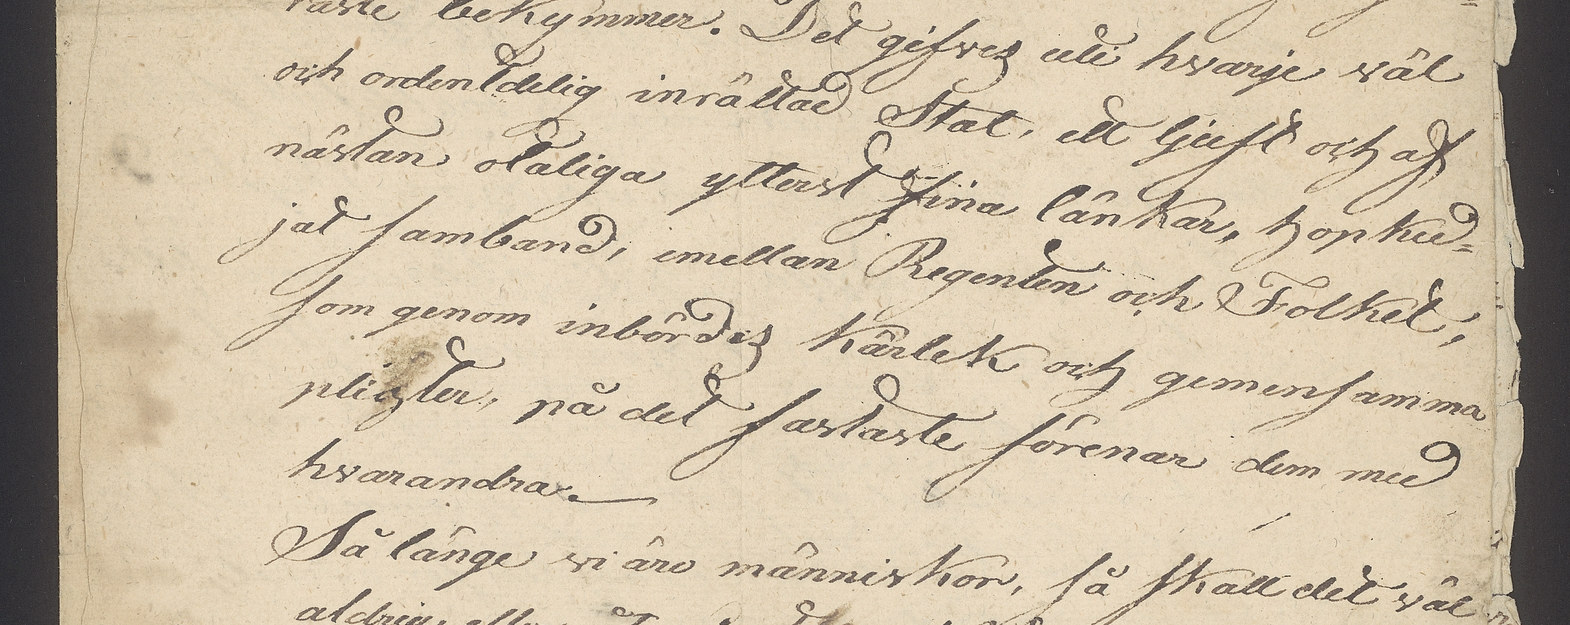 raste bekymmer. Det gifves uti hvarje väl
och ordentdelig inrättad Stat, ett ljuft och af
nästan otaliga ytterst fina länkar, hopknd-
jat samband, emellan Regenten och Folket,
som genom inbördes kärlek och gemensamma
pligter, på det fastaste förenar dem med
hvarandra.
Så länge vi äro människor, så skall det väl
aldrig